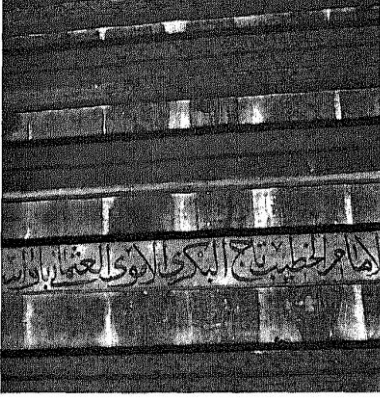 لامام الخطيب تاج البكري الاموي العثماني